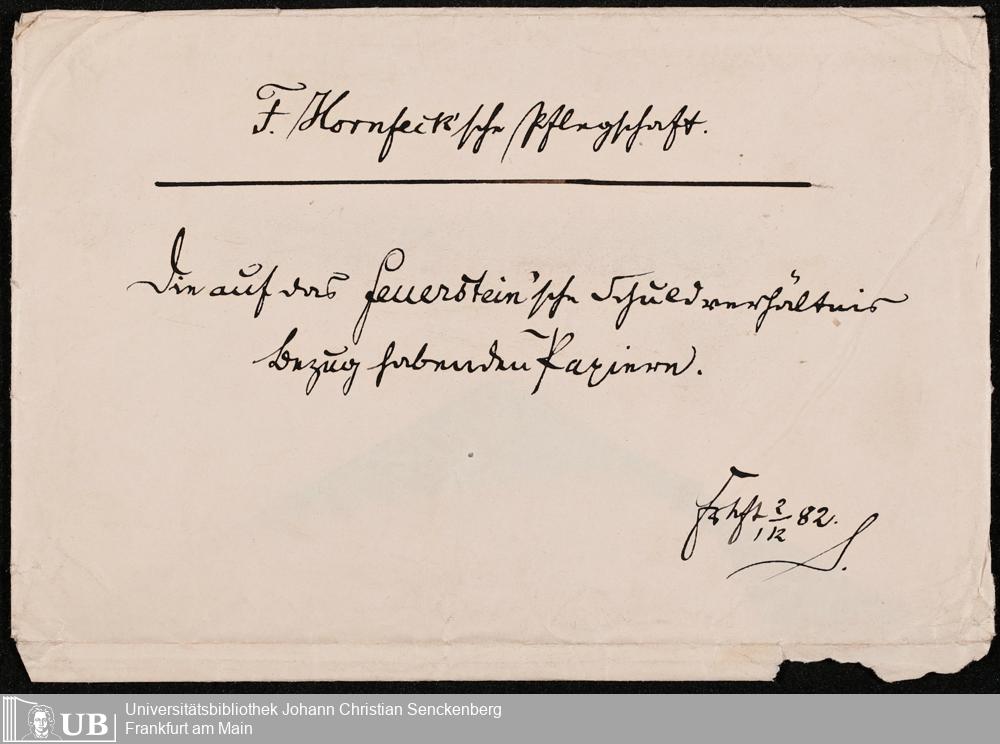 F. Hornfeck'sche Pflegschaft.
Die auf das Feuerstein'sche Schuldverhältnis
bezug habenden Papiere.
Frkft 2/12 82.
S.
UB
Universitätsbibliothek Johann Christian Senckenberg
Frankfurt am Main